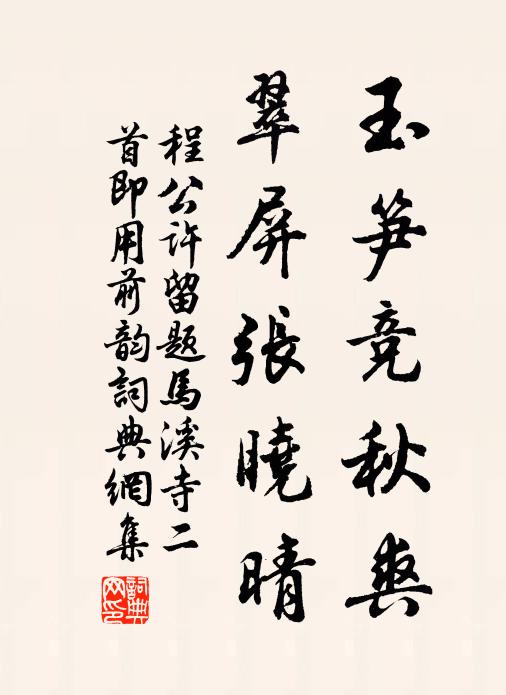 玉笋竞秋爽
翠屏張曉晴
程公许留题馬溪寺二
首即用前韵詞典網集
詞典網印